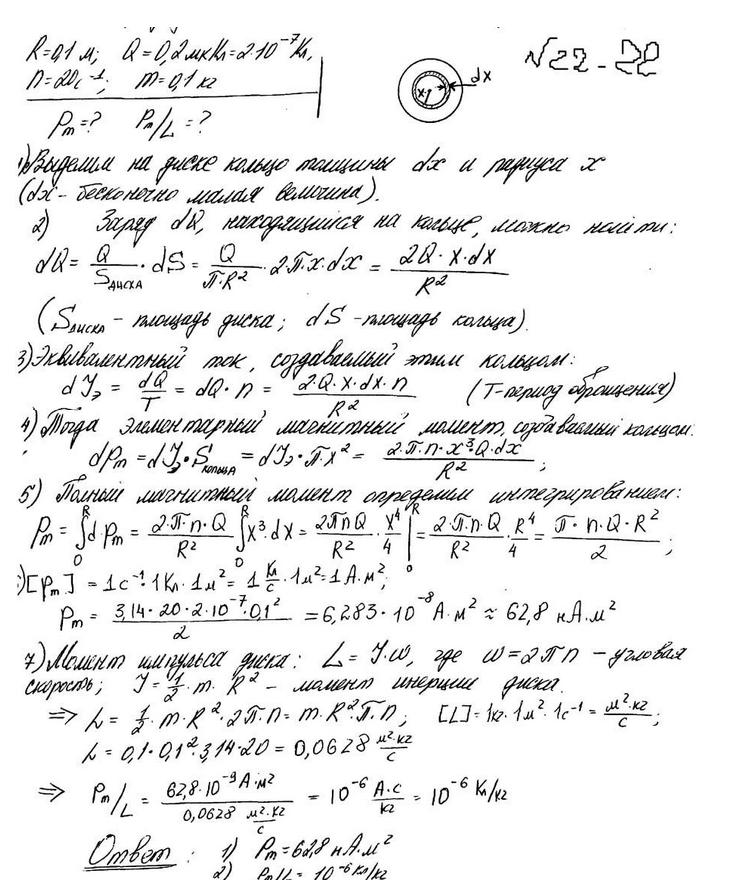 R=0,1 м; Q=0,2 мкКл=2·10⁻⁷Кл,
n=20с⁻¹; m=0,1 кг
Pm=? Pm/L=?
x dx
√22-22
1) Выделим на диске кольцо толщины dx и радиуса x
(dx - бесконечно малая величина).
2) Заряд dQ, находящийся на кольце, можно найти:
dQ = Q/Sдиска · dS = Q/(π·R²) · 2·π·x·dx = 2Q·x·dx/R²
(Sдиска - площадь диска; dS - площадь кольца).
3) Эквивалентный ток, создаваемый этим кольцом:
dJэ = dQ/T = dQ·n = 2·Q·x·dx·n/R² (T-период обращения)
4) Тогда элементарный магнитный момент, создаваемый кольцом:
dPm = dJэ·Sкольца = dJэ·π·x² = 2·π·n·x³·Q·dx/R²;
5) Полный магнитный момент определим интегрированием:
Pm = ∫₀ᴿ dPm = 2·π·n·Q/R² ∫₀ᴿ x³·dx = 2πnQ/R² · x⁴/4 |₀ᴿ = 2·π·n·Q/R² · R⁴/4 = π·n·Q·R²/2;
[Pm] = 1с⁻¹·1Кл·1м² = 1 Кл/с · 1м² = 1А·м²;
Pm = 3,14·20·2·10⁻⁷·0,1²/2 = 6,283·10⁻⁸ А·м² ≈ 62,8 нА·м²
7) Момент импульса диска: L = J·ω, где ω = 2πn - угловая
скорость; J = 1/2·m·R² - момент инерции диска.
⇒ L = 1/2·m·R²·2π·n = m·R²·π·n; [L] = 1кг·1м²·1с⁻¹ = м²·кг/с;
L = 0,1·0,1²·3,14·20 = 0,0628 м²·кг/с
⇒ Pm/L = 62,8·10⁻⁹ А·м²/0,0628 м²·кг/с = 10⁻⁶ А·с/кг = 10⁻⁶ Кл/кг
Ответ: 1) Pm = 62,8 нА·м²
2) Pm/L = 10⁻⁶ Кл/кг